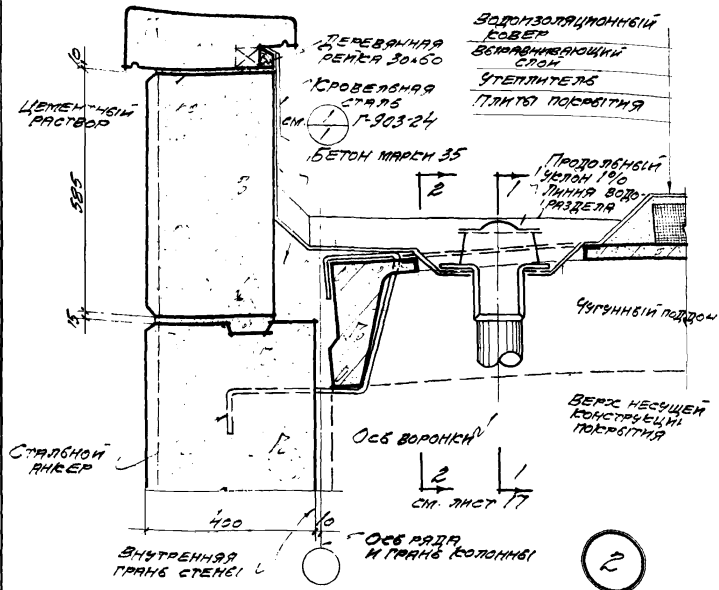 ДЕРЕВЯННАЯ
РЕЙКА 30×60
КРОВЕЛЬНАЯ
СТАЛЬ
см. 1 Г-903-24
БЕТОН МАРКИ 35
ВОДОИЗОЛЯЦИОННЫЙ
КОВЕР
ВЫРАВНИВАЮЩИЙ
СЛОЙ
УТЕПЛИТЕЛЬ
ПЛИТЫ ПОКРЫТИЯ
ЦЕМЕНТНЫЙ
РАСТВОР
10
585
15
2 1
ПРОДОЛЬНЫЙ
УКЛОН 1%
ЛИНИЯ ВОДО-
РАЗДЕЛА
ЧУГУННЫЙ ПОДДОН
ВЕРХ НЕСУЩЕЙ
КОНСТРУКЦИИ
ПОКРЫТИЯ
ОСЬ ВОРОНКИ
2 1
СМ. ЛИСТ 17
СТАЛЬНОЙ
АНКЕР
400 10
ВНУТРЕННЯЯ
ГРАНЬ СТЕНЫ
ОСЬ РЯДА
И ГРАНЬ КОЛОННЫ
2